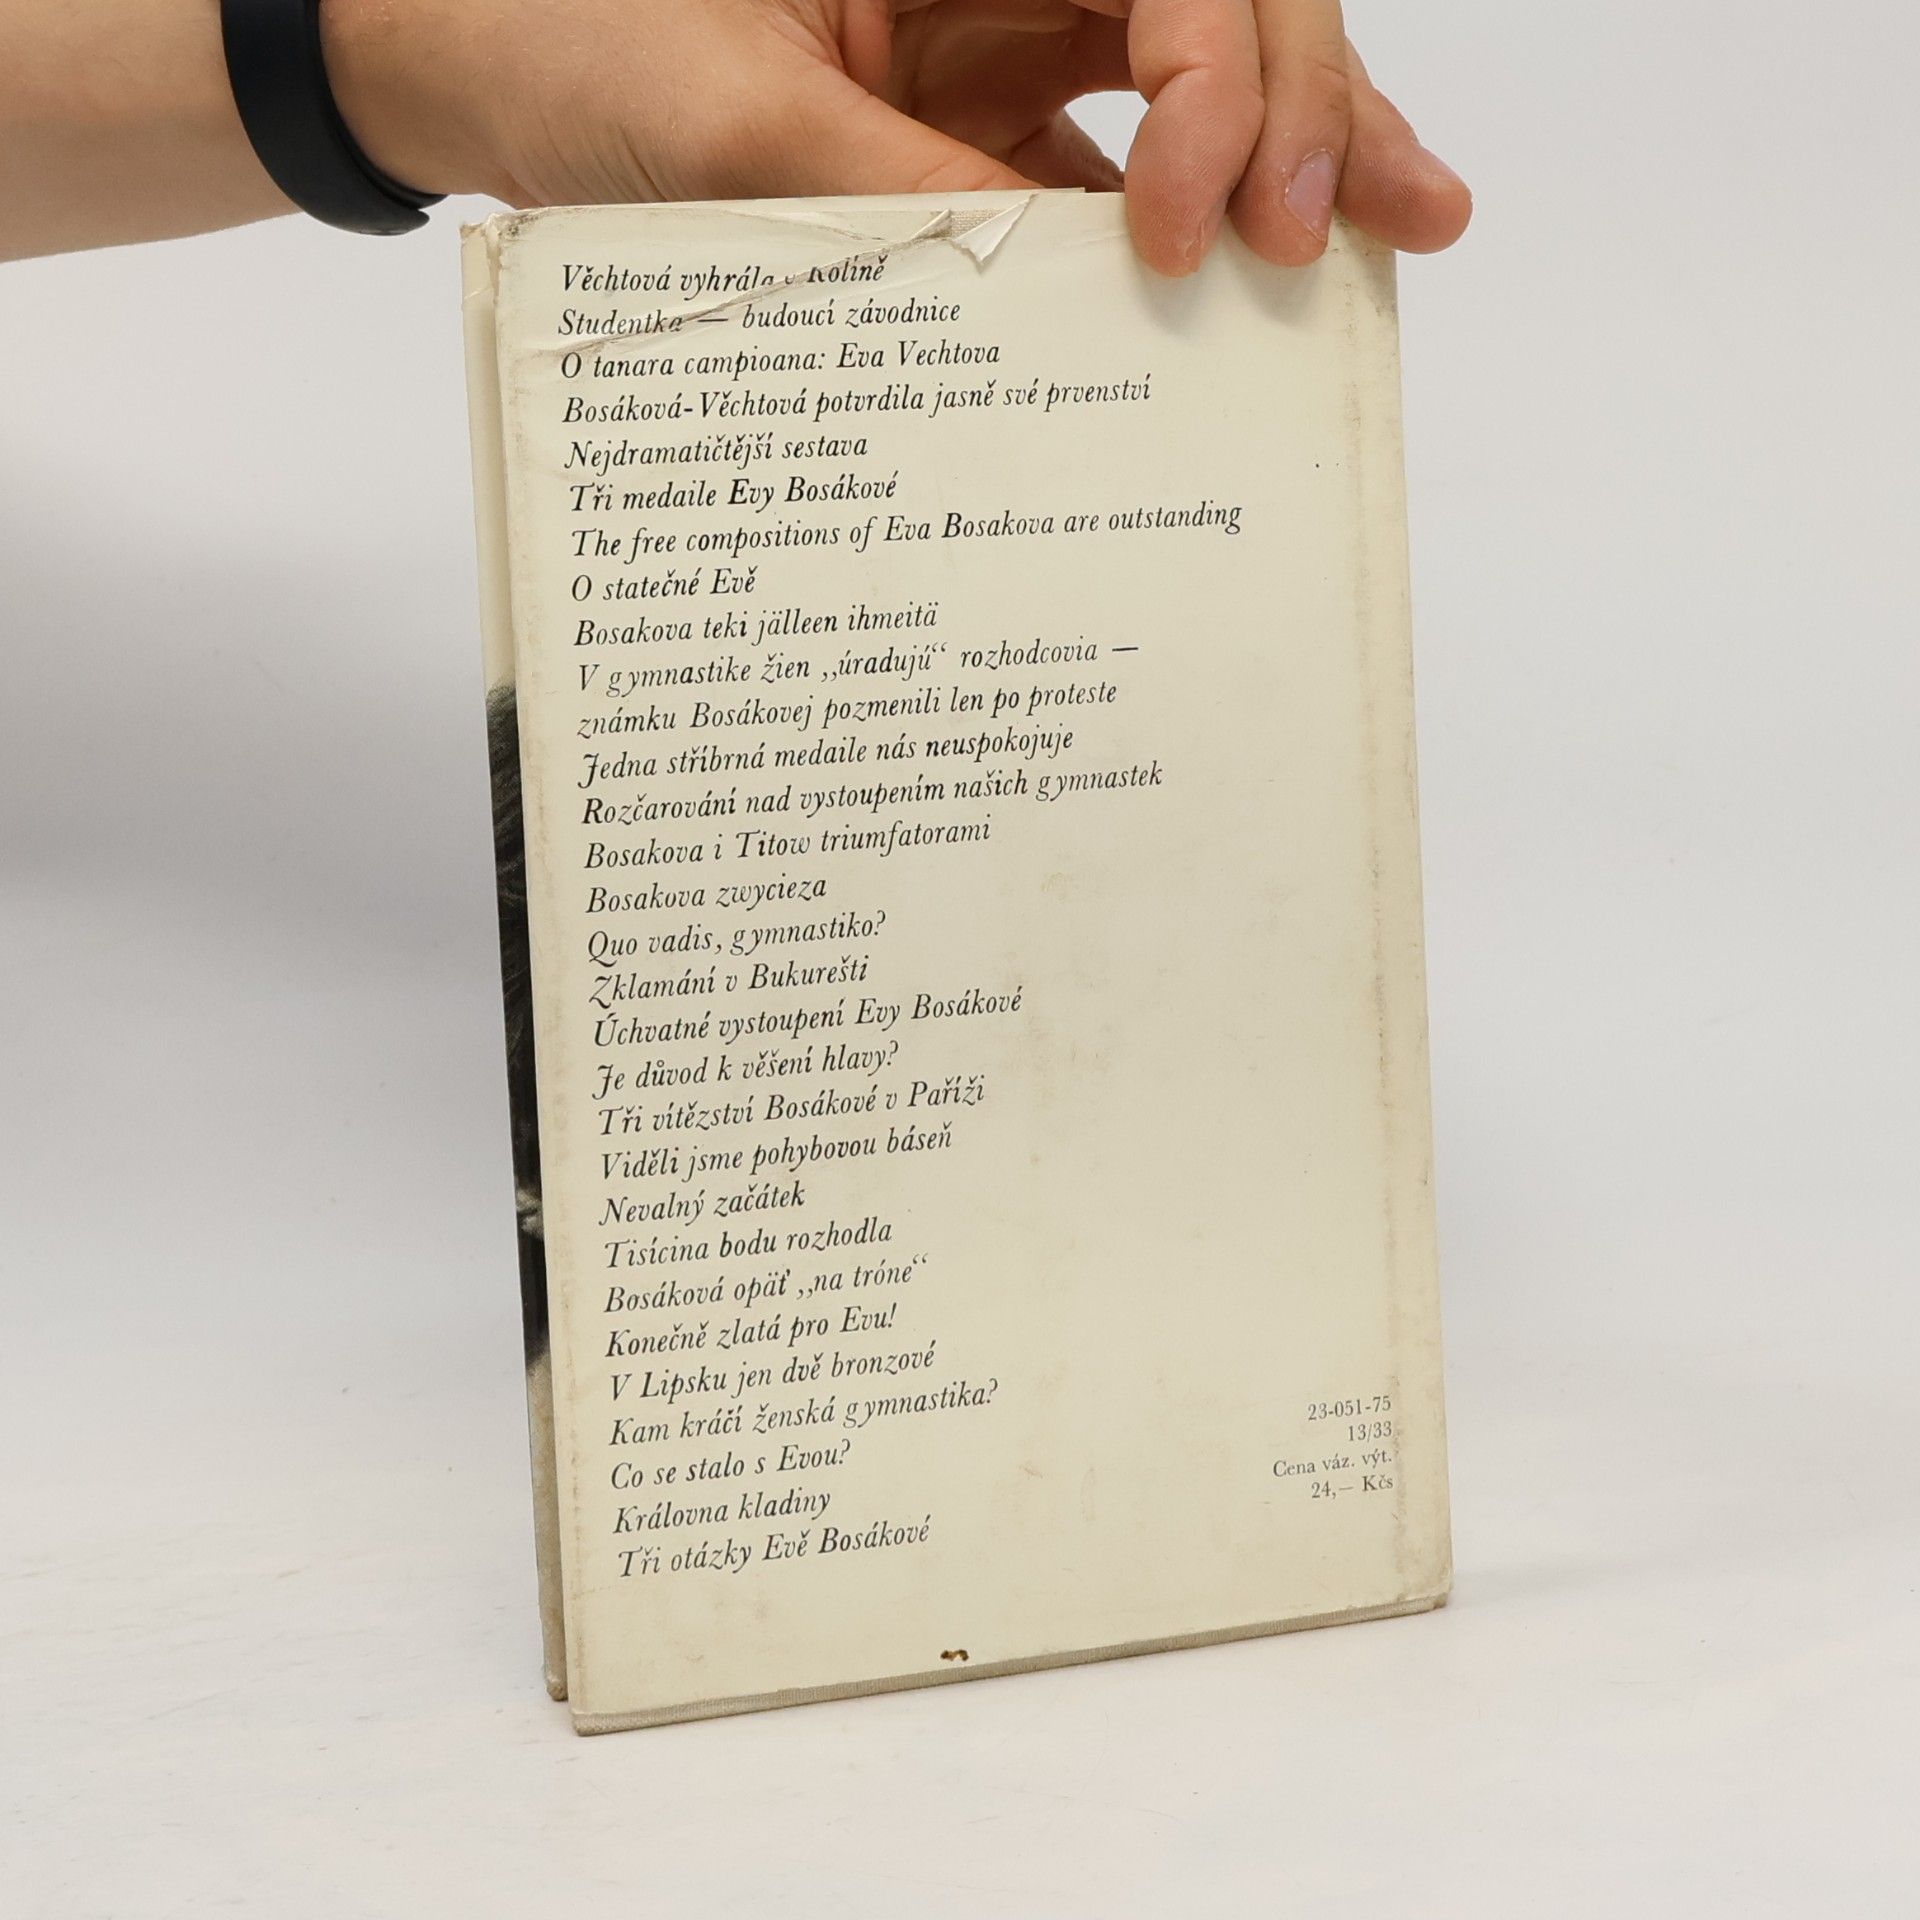 Věchtová vyhrála v Kolíně
Studentka — budoucí závodnice
O tanara campioana: Eva Vechtova
Bosáková-Věchtová potvrdila jasně své prvenství
Nejdramatičtější sestava
Tři medaile Evy Bosákové
The free compositions of Eva Bosakova are outstanding
O statečné Evě
Bosakova teki jälleen ihmeitä
V gymnastike žien „úradujú“ rozhodcovia —
známku Bosákovej pozmenili len po proteste
Jedna stříbrná medaile nás neuspokojuje
Rozčarování nad vystoupením našich gymnastek
Bosakova i Titow triumfatorami
Bosakova zwycieza
Quo vadis, gymnastiko?
Zklamání v Bukurešti
Úchvatné vystoupení Evy Bosákové
Je důvod k věšení hlavy?
Tři vítězství Bosákové v Paříži
Viděli jsme pohybovou báseň
Nevalný začátek
Tisícina bodu rozhodla
Bosáková opäť „na tróne“
Konečně zlatá pro Evu!
V Lipsku jen dvě bronzové
Kam kráčí ženská gymnastika?
Co se stalo s Evou?
Královna kladiny
Tři otázky Evě Bosákové
23-051-75
13/33
Cena váz. výt.
24,— Kčs